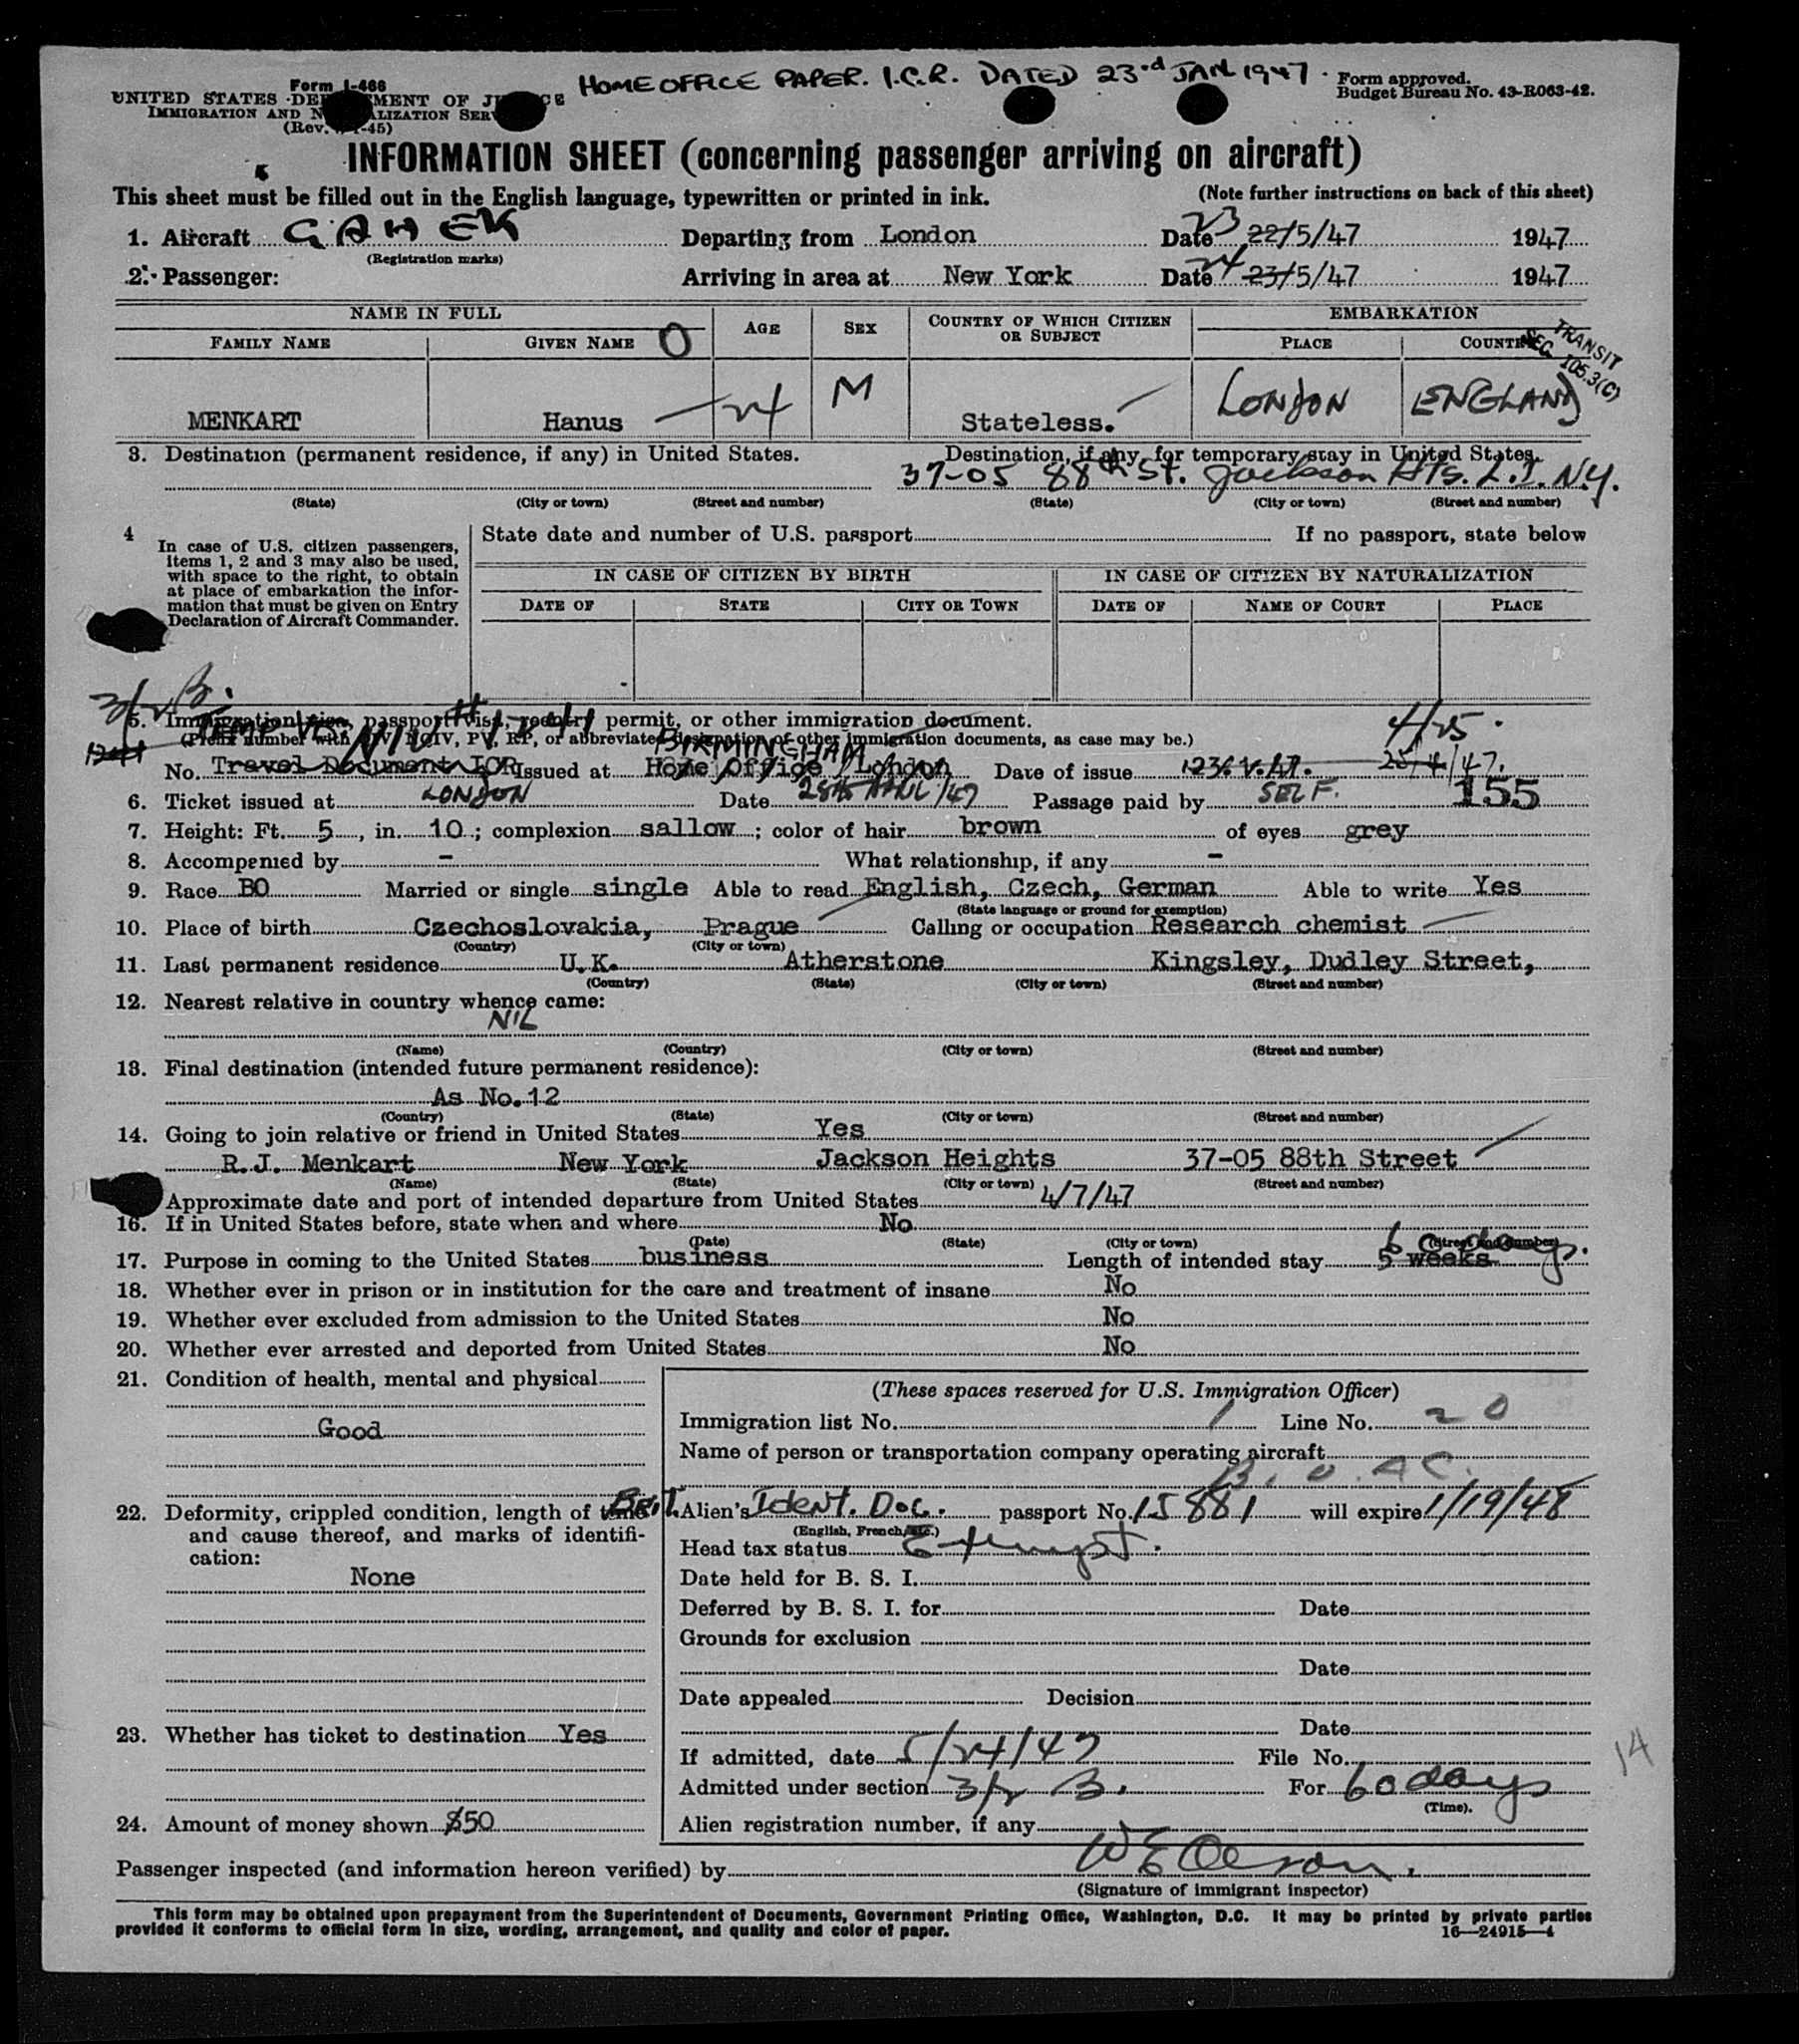 HOME OFFICE PAPER. I.C.R. DATED 23rd JAN 1947.
Form I-466
UNITED STATES DEPARTMENT OF JUSTICE
IMMIGRATION AND NATURALIZATION SERVICE
(Rev. -45)
Form approved.
Budget Bureau No. 43-R063-42.
INFORMATION SHEET (concerning passenger arriving on aircraft)
This sheet must be filled out in the English language, typewritten or printed in ink. (Note further instructions on back of this sheet)
1. Aircraft GAHEK Departing from London Date 23 22/5/47 1947
(Registration marks)
2. Passenger: Arriving in area at New York Date 24 23/5/47 1947
NAME IN FULL AGE SEX COUNTRY OF WHICH CITIZEN OR SUBJECT EMBARKATION
FAMILY NAME GIVEN NAME O PLACE COUNTRY
TRANSIT
SEC. 105.3(C)
MENKART Hanus 24 M Stateless. LONDON ENGLAND
3. Destination (permanent residence, if any) in United States. Destination, if any, for temporary stay in United States.
37-05 88th St. Jackson Hts. L.I. N.Y.
(State) (City or town) (Street and number) (State) (City or town) (Street and number)
4 In case of U.S. citizen passengers, items 1, 2 and 3 may also be used, with space to the right, to obtain at place of embarkation the information that must be given on Entry Declaration of Aircraft Commander.
State date and number of U.S. passport If no passport, state below
IN CASE OF CITIZEN BY BIRTH IN CASE OF CITIZEN BY NATURALIZATION
DATE OF STATE CITY OR TOWN DATE OF NAME OF COURT PLACE
3/2 B.
5. Immigration visa, passport visa, reentry permit, or other immigration document. 4/25.
(Prefix number with QIV, NQIV, PV, RP, or abbreviated designation of other immigration documents, as case may be.)
TEMP NIV # 1241
1241
BIRMINGHAM
No. Travel Document ICR Issued at Home Office London Date of issue 25/4/47.
6. Ticket issued at LONDON Date 28th APRIL/47 Passage paid by SELF. 155
7. Height: Ft. 5, in. 10; complexion sallow; color of hair brown of eyes grey
8. Accompenied by - What relationship, if any -
9. Race BO Married or single single Able to read English, Czech, German Able to write Yes
(State language or ground for exemption)
10. Place of birth Czechoslovakia, Prague Calling or occupation Research chemist
(Country) (City or town)
11. Last permanent residence U.K. Atherstone Kingsley, Dudley Street,
(Country) (State) (City or town) (Street and number)
12. Nearest relative in country whence came:
NIL
(Name) (Country) (City or town) (Street and number)
13. Final destination (intended future permanent residence):
As No.12
(Country) (State) (City or town) (Street and number)
14. Going to join relative or friend in United States Yes
R.J. Menkart New York Jackson Heights 37-05 88th Street
(Name) (State) (City or town) (Street and number)
Approximate date and port of intended departure from United States 4/7/47
16. If in United States before, state when and where No
(Date) (State) (City or town) (Street and number)
17. Purpose in coming to the United States business Length of intended stay 5 weeks 60 days.
18. Whether ever in prison or in institution for the care and treatment of insane No
19. Whether ever excluded from admission to the United States No
20. Whether ever arrested and deported from United States No
21. Condition of health, mental and physical
Good
22. Deformity, crippled condition, length of time and cause thereof, and marks of identification:
None
23. Whether has ticket to destination Yes
24. Amount of money shown $50
(These spaces reserved for U.S. Immigration Officer)
Immigration list No. 1 Line No. 20
Name of person or transportation company operating aircraft
B.O.A.C.
Brit. Alien's Ident. Doc. passport No. 15881 will expire 1/19/48
(English, French, etc.)
Head tax status Exempt.
Date held for B. S. I.
Deferred by B. S. I. for Date
Grounds for exclusion
Date
Date appealed Decision
Date
If admitted, date 5/24/47 File No.
Admitted under section 3/2 B. For 60 days
(Time).
Alien registration number, if any
14
Passenger inspected (and information hereon verified) by W E Olson.
(Signature of immigrant inspector)
This form may be obtained upon prepayment from the Superintendent of Documents, Government Printing Office, Washington, D.C. It may be printed by private parties
provided it conforms to official form in size, wording, arrangement, and quality and color of paper. 16—24915-4